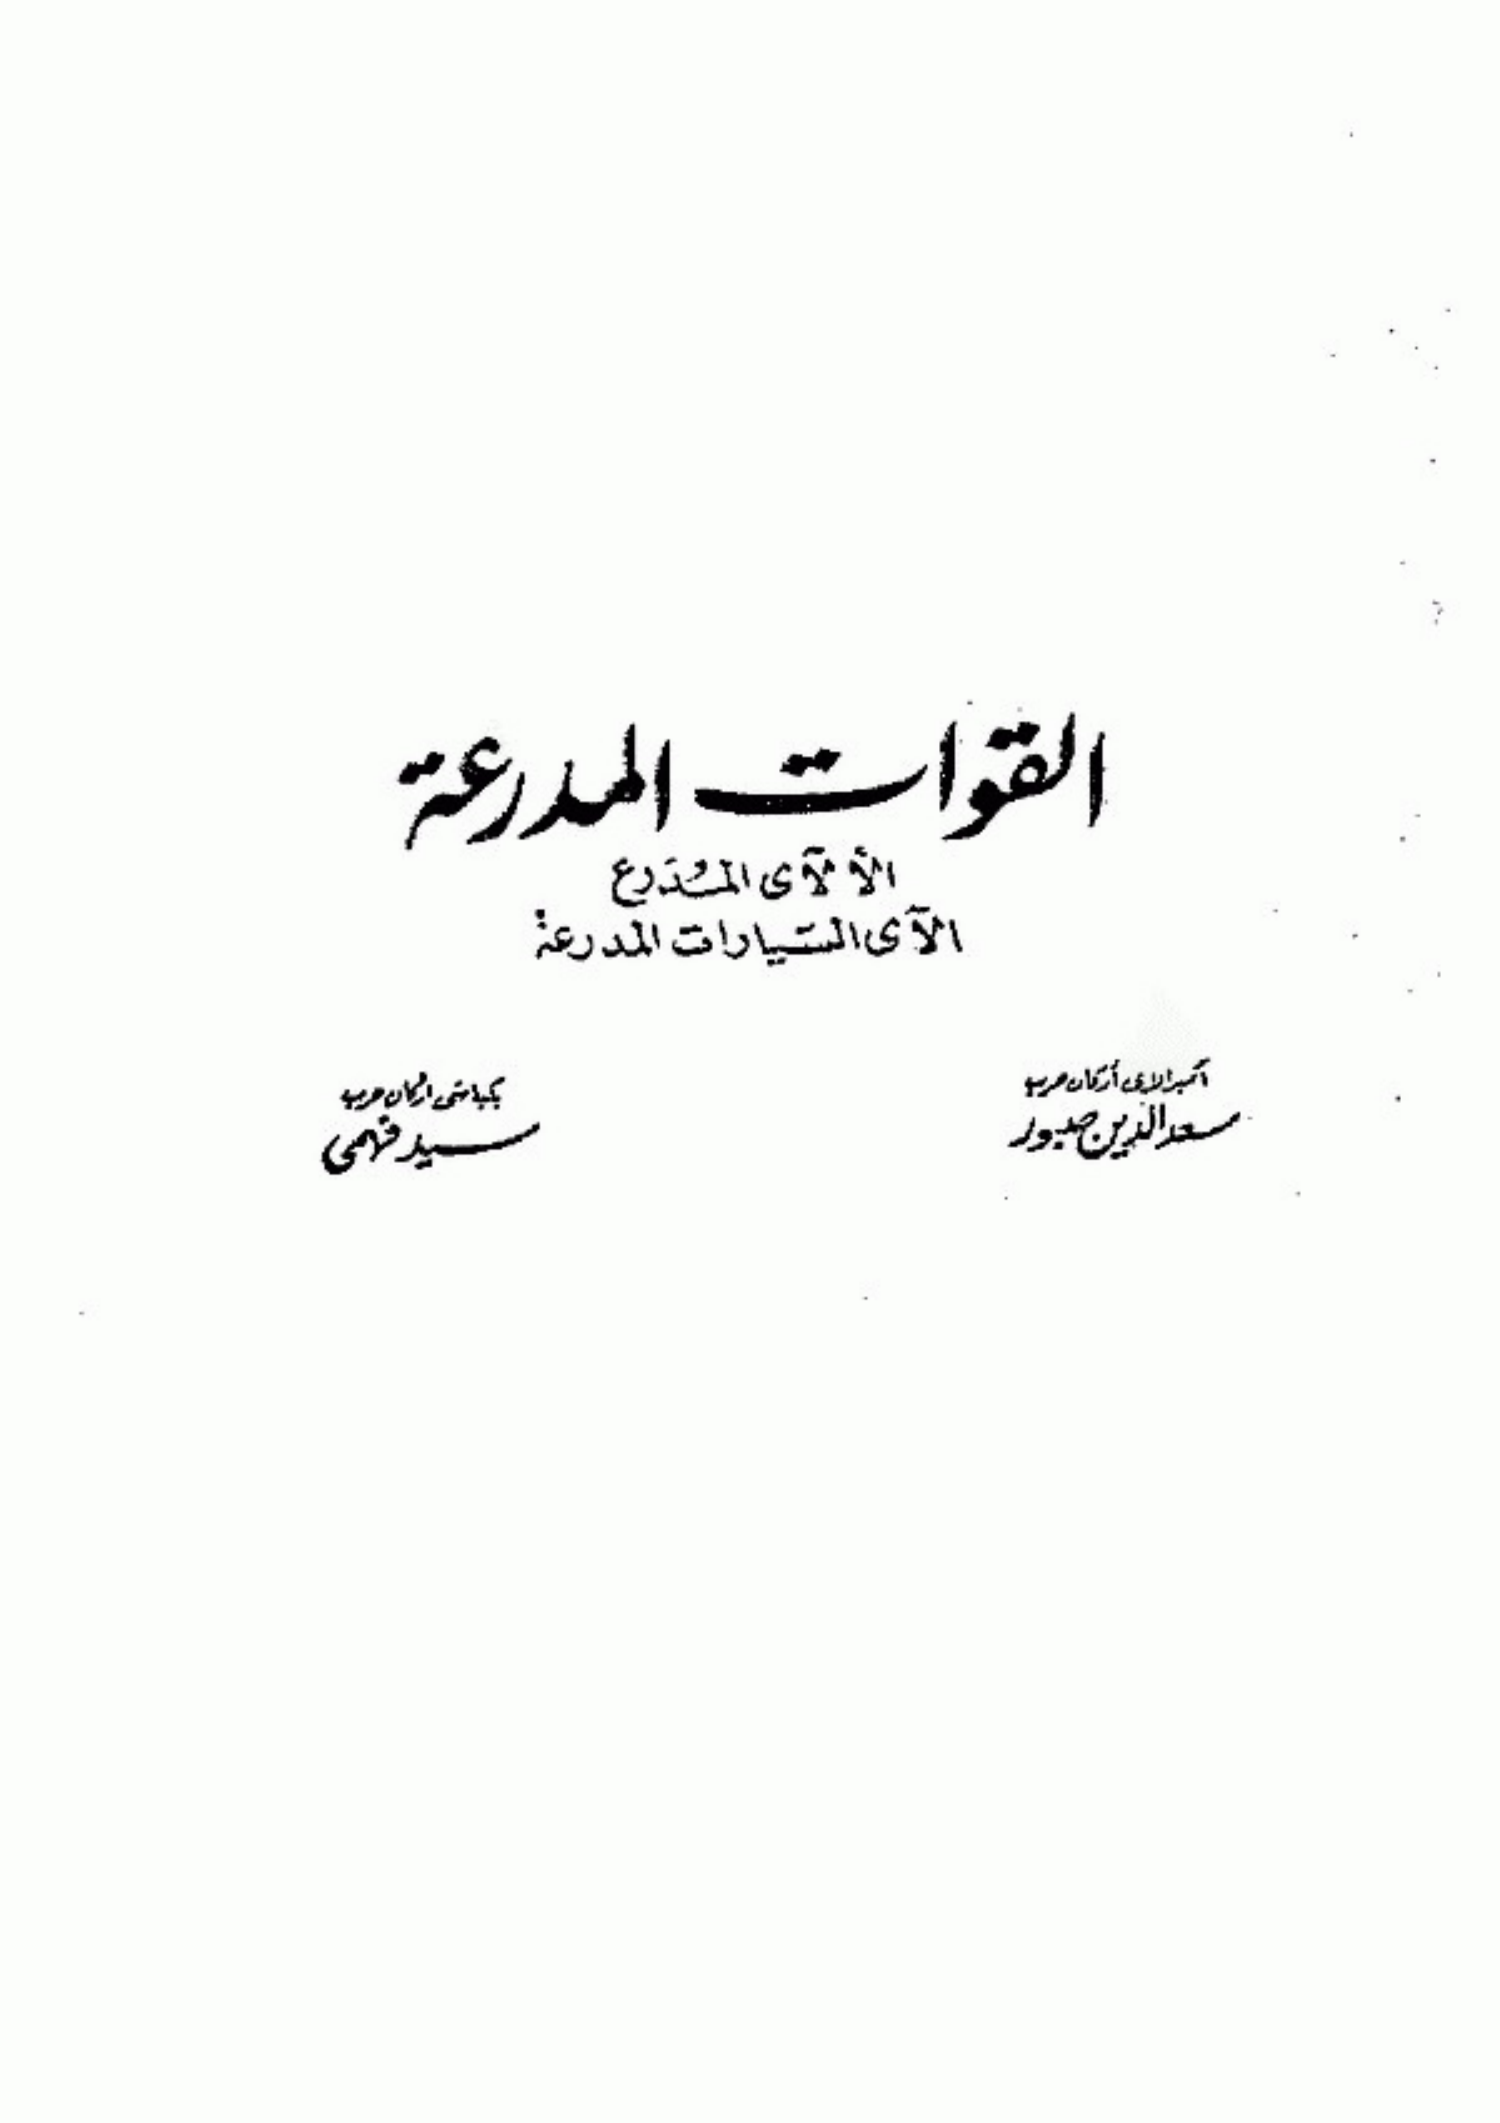 القوات المدرعة
الألآى المدرع
الآى السيارات المدرعة
أميرالاى أركان حرب
سعد الدين صبور
بكباشى اركان حرب
سيد فهمى